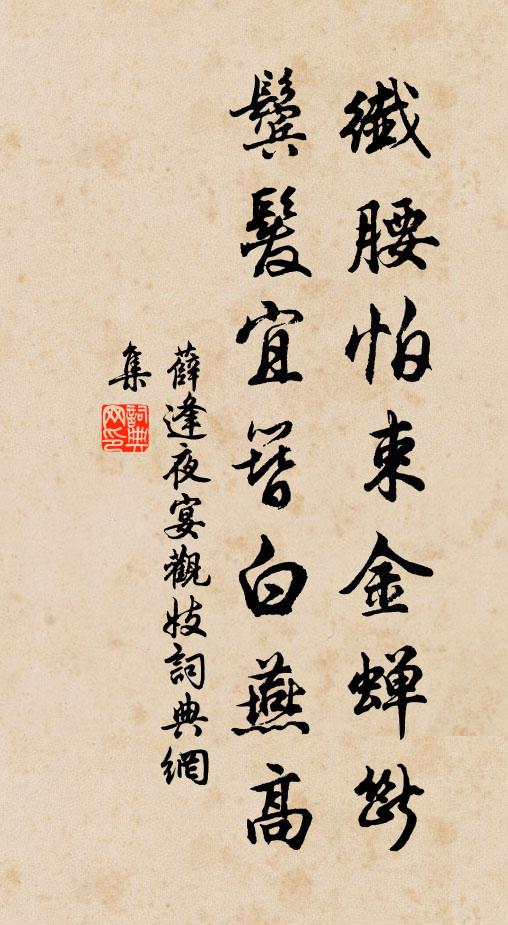 纖腰怕束金蟬斷
鬢髮宜簪白燕高
薛逢夜宴觀妓詞典網
集
詞典网印